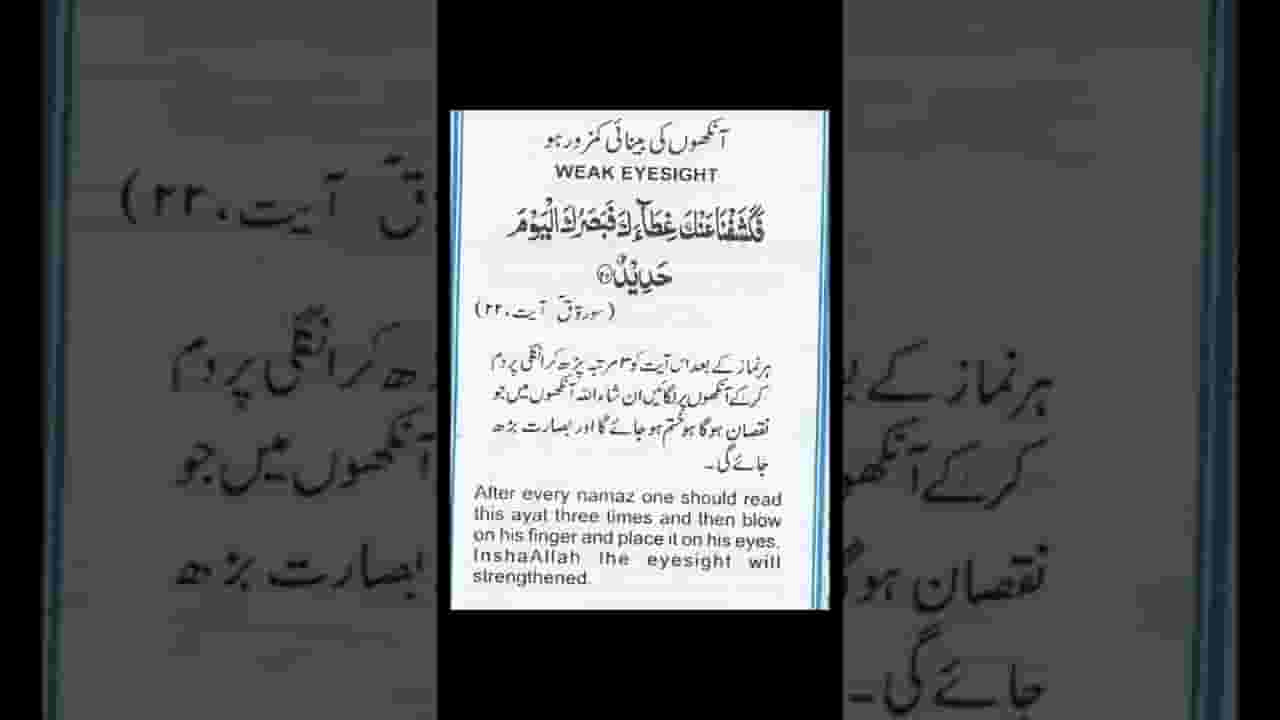 آنکھوں کی بینائی کمزور ہو
WEAK EYESIGHT
فَكَشَفْنَا عَنْكَ غِطَآءَكَ فَبَصَرُكَ الْيَوْمَ
حَدِيْدٌ
(سورۃ قٓ آیت، ۲۲)
ہر نماز کے بعد اس آیت کو ۳ مرتبہ پڑھ کر انگلی پر دم
کر کے آنکھوں پر لگائیں ان شاء اللہ آنکھوں میں جو
نقصان ہوگا ہو ختم ہو جائے گا اور بصارت بڑھ
جائے گی۔
After every namaz one should read
this ayat three times and then blow
on his finger and place it on his eyes.
InshaAllah the eyesight will
strengthened.